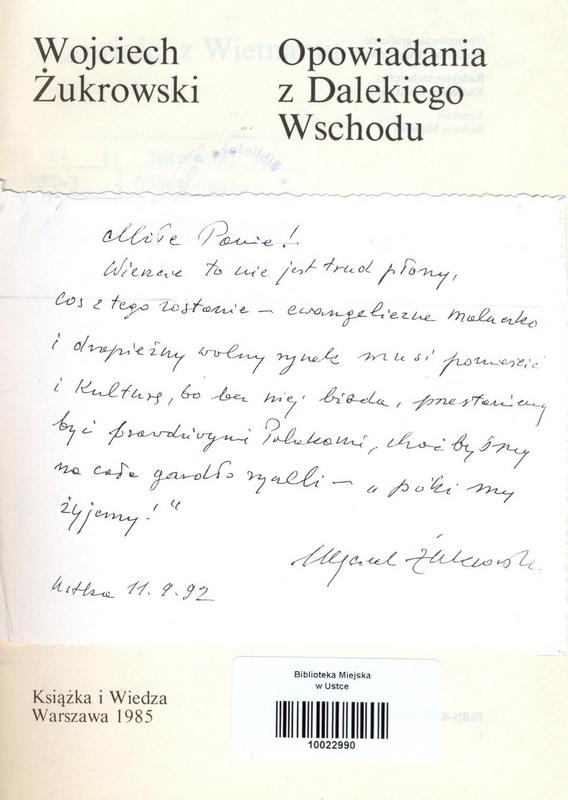 Wojciech
Żukrowski
Opowiadania
z Dalekiego
Wschodu
Miłe Panie!
Wierzcie to nie jest trud płony,
coś z tego zostanie – ewangeliczne maluczko
i drapieżny wolny rynek musi pomieścić
i Kulturę, bo bez niej bieda, przestaniemy
być prawdziwymi Polakami, choćbyśmy
na całe gardło ryczeli – „póki my
żyjemy!"
Wojciech Żukrowski
Ustka 11.9.92
Książka i Wiedza
Warszawa 1985
Biblioteka Miejska
w Ustce
10022990